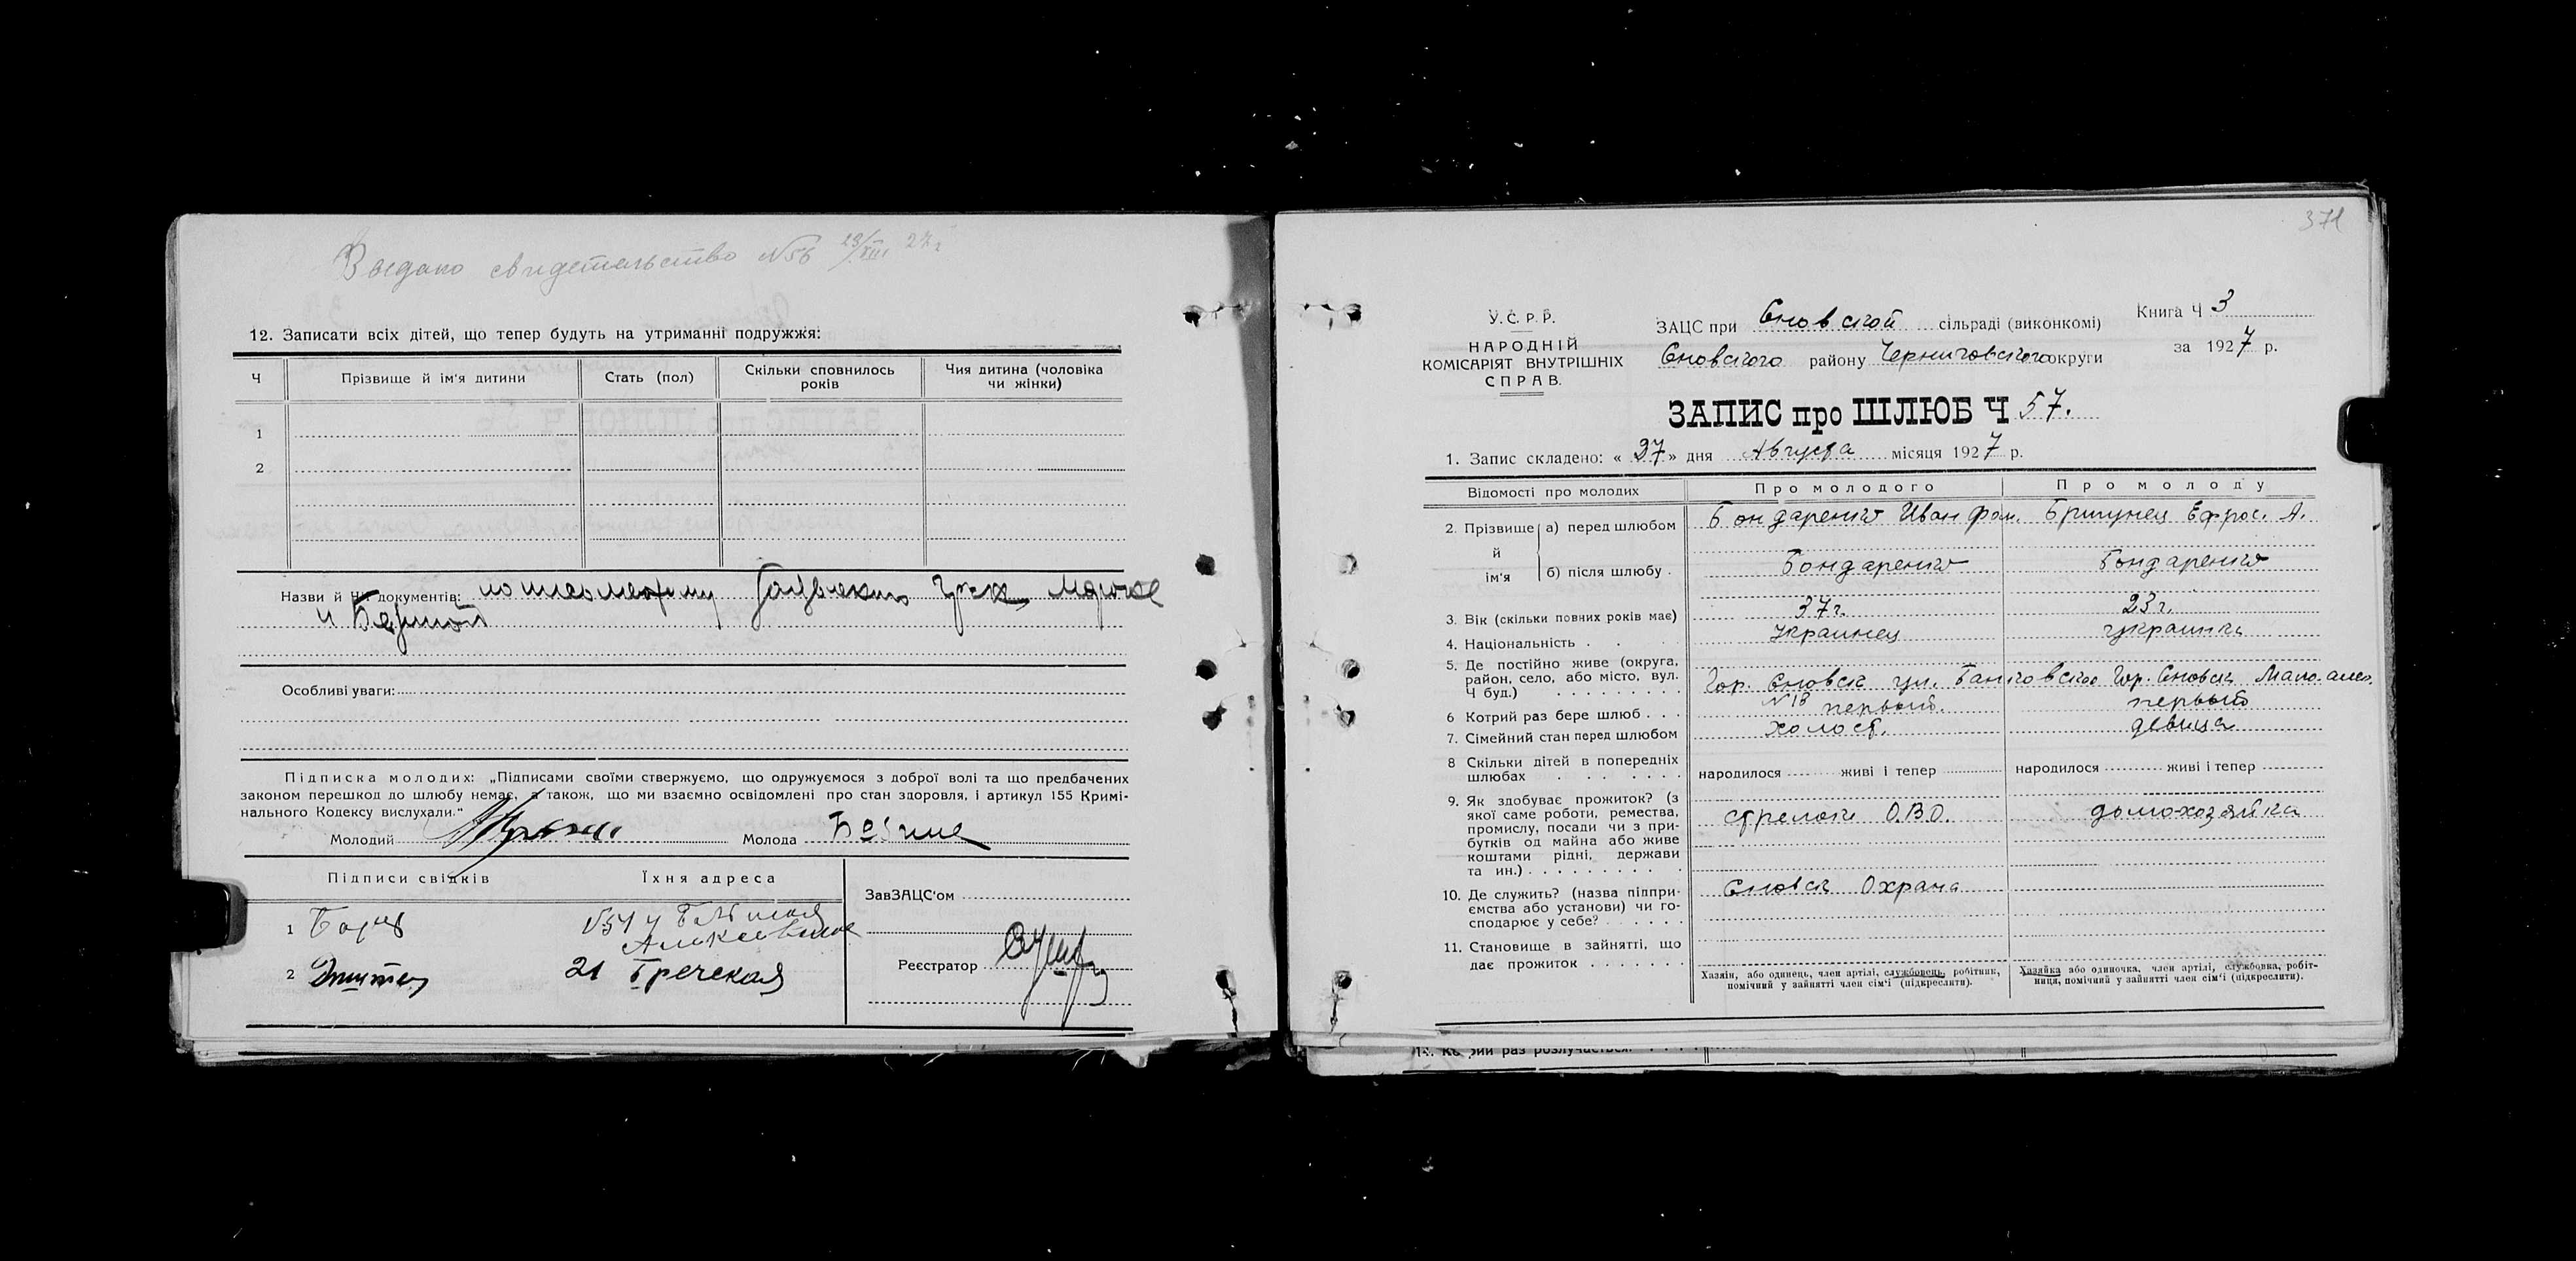 Выдано свидетельство №56 23/VIII 27 г
12. Записати всіх дітей, що тепер будуть на утриманні подружжя:
Ч Прізвище й ім'я дитини Стать (пол) Скільки сповнилось років Чия дитина (чоловіка чи жінки)
1
2
Назви й ЧЧ документів:
и
Особливі уваги:
Підписка молодих: „Підписами своїми стверджуємо, що одружуємося з доброї волі та що предбачених
законом перешкод до шлюбу немає, а також, що ми взаємно освідомлені про стан здоровля, і артикул 155 Кримі-
нального Кодексу вислухали."
Молодий Молода
Підписи свідків Їхня адреса
ЗавЗАЦС'ом
1
2 21 Греческая
Реєстратор
371
У.С.Р.Р.
НАРОДНІЙ
КОМІСАРІЯТ ВНУТРІШНІХ
СПРАВ.
ЗАЦС при Сновской сільраді (виконкомі)
Сновского району Черниговского округи
Книга Ч 3
за 1927 р.
ЗАПИС про ШЛЮБ Ч 57.
1. Запис складено: « 27 » дня Августа місяця 1927 р.
Відомості про молодих Про молодого Про молоду
2. Прізвище й ім'я а) перед шлюбом Бондаренко Иван Фом. Бригунец Ефрос. А.
б) після шлюбу Бондаренко Бондаренко
3. Вік (скільки повних років має) 37 г. 23 г.
4. Національність Украинец украинка
5. Де постійно живе (округа, район, село, або місто, вул. Ч буд.) Гор. Сновск ул. №18 Гор. Сновск
6 Котрий раз бере шлюб первый. первый
7. Сімейний стан перед шлюбом холост. девица
8 Скільки дітей в попередніх шлюбах народилося живі і тепер народилося живі і тепер
9. Як здобуває прожиток? (з якої саме роботи, ремества, промислу, посади чи з прибутків од майна або живе коштами рідні, держави та ин.) стрелок О.В.О. домохозяйка
10. Де служить? (назва підприємства або установи) чи господарює у себе? Сновск Охрана
11. Становище в зайнятті, що дає прожиток
Хазяїн, або одинець, член артілі, службовець, робітник, помічний у зайнятті член сім'ї (підкреслити).
Хазяйка або одиночка, член артілі, службовка, робітниця, помічний у зайнятті член сім'ї (підкреслити).